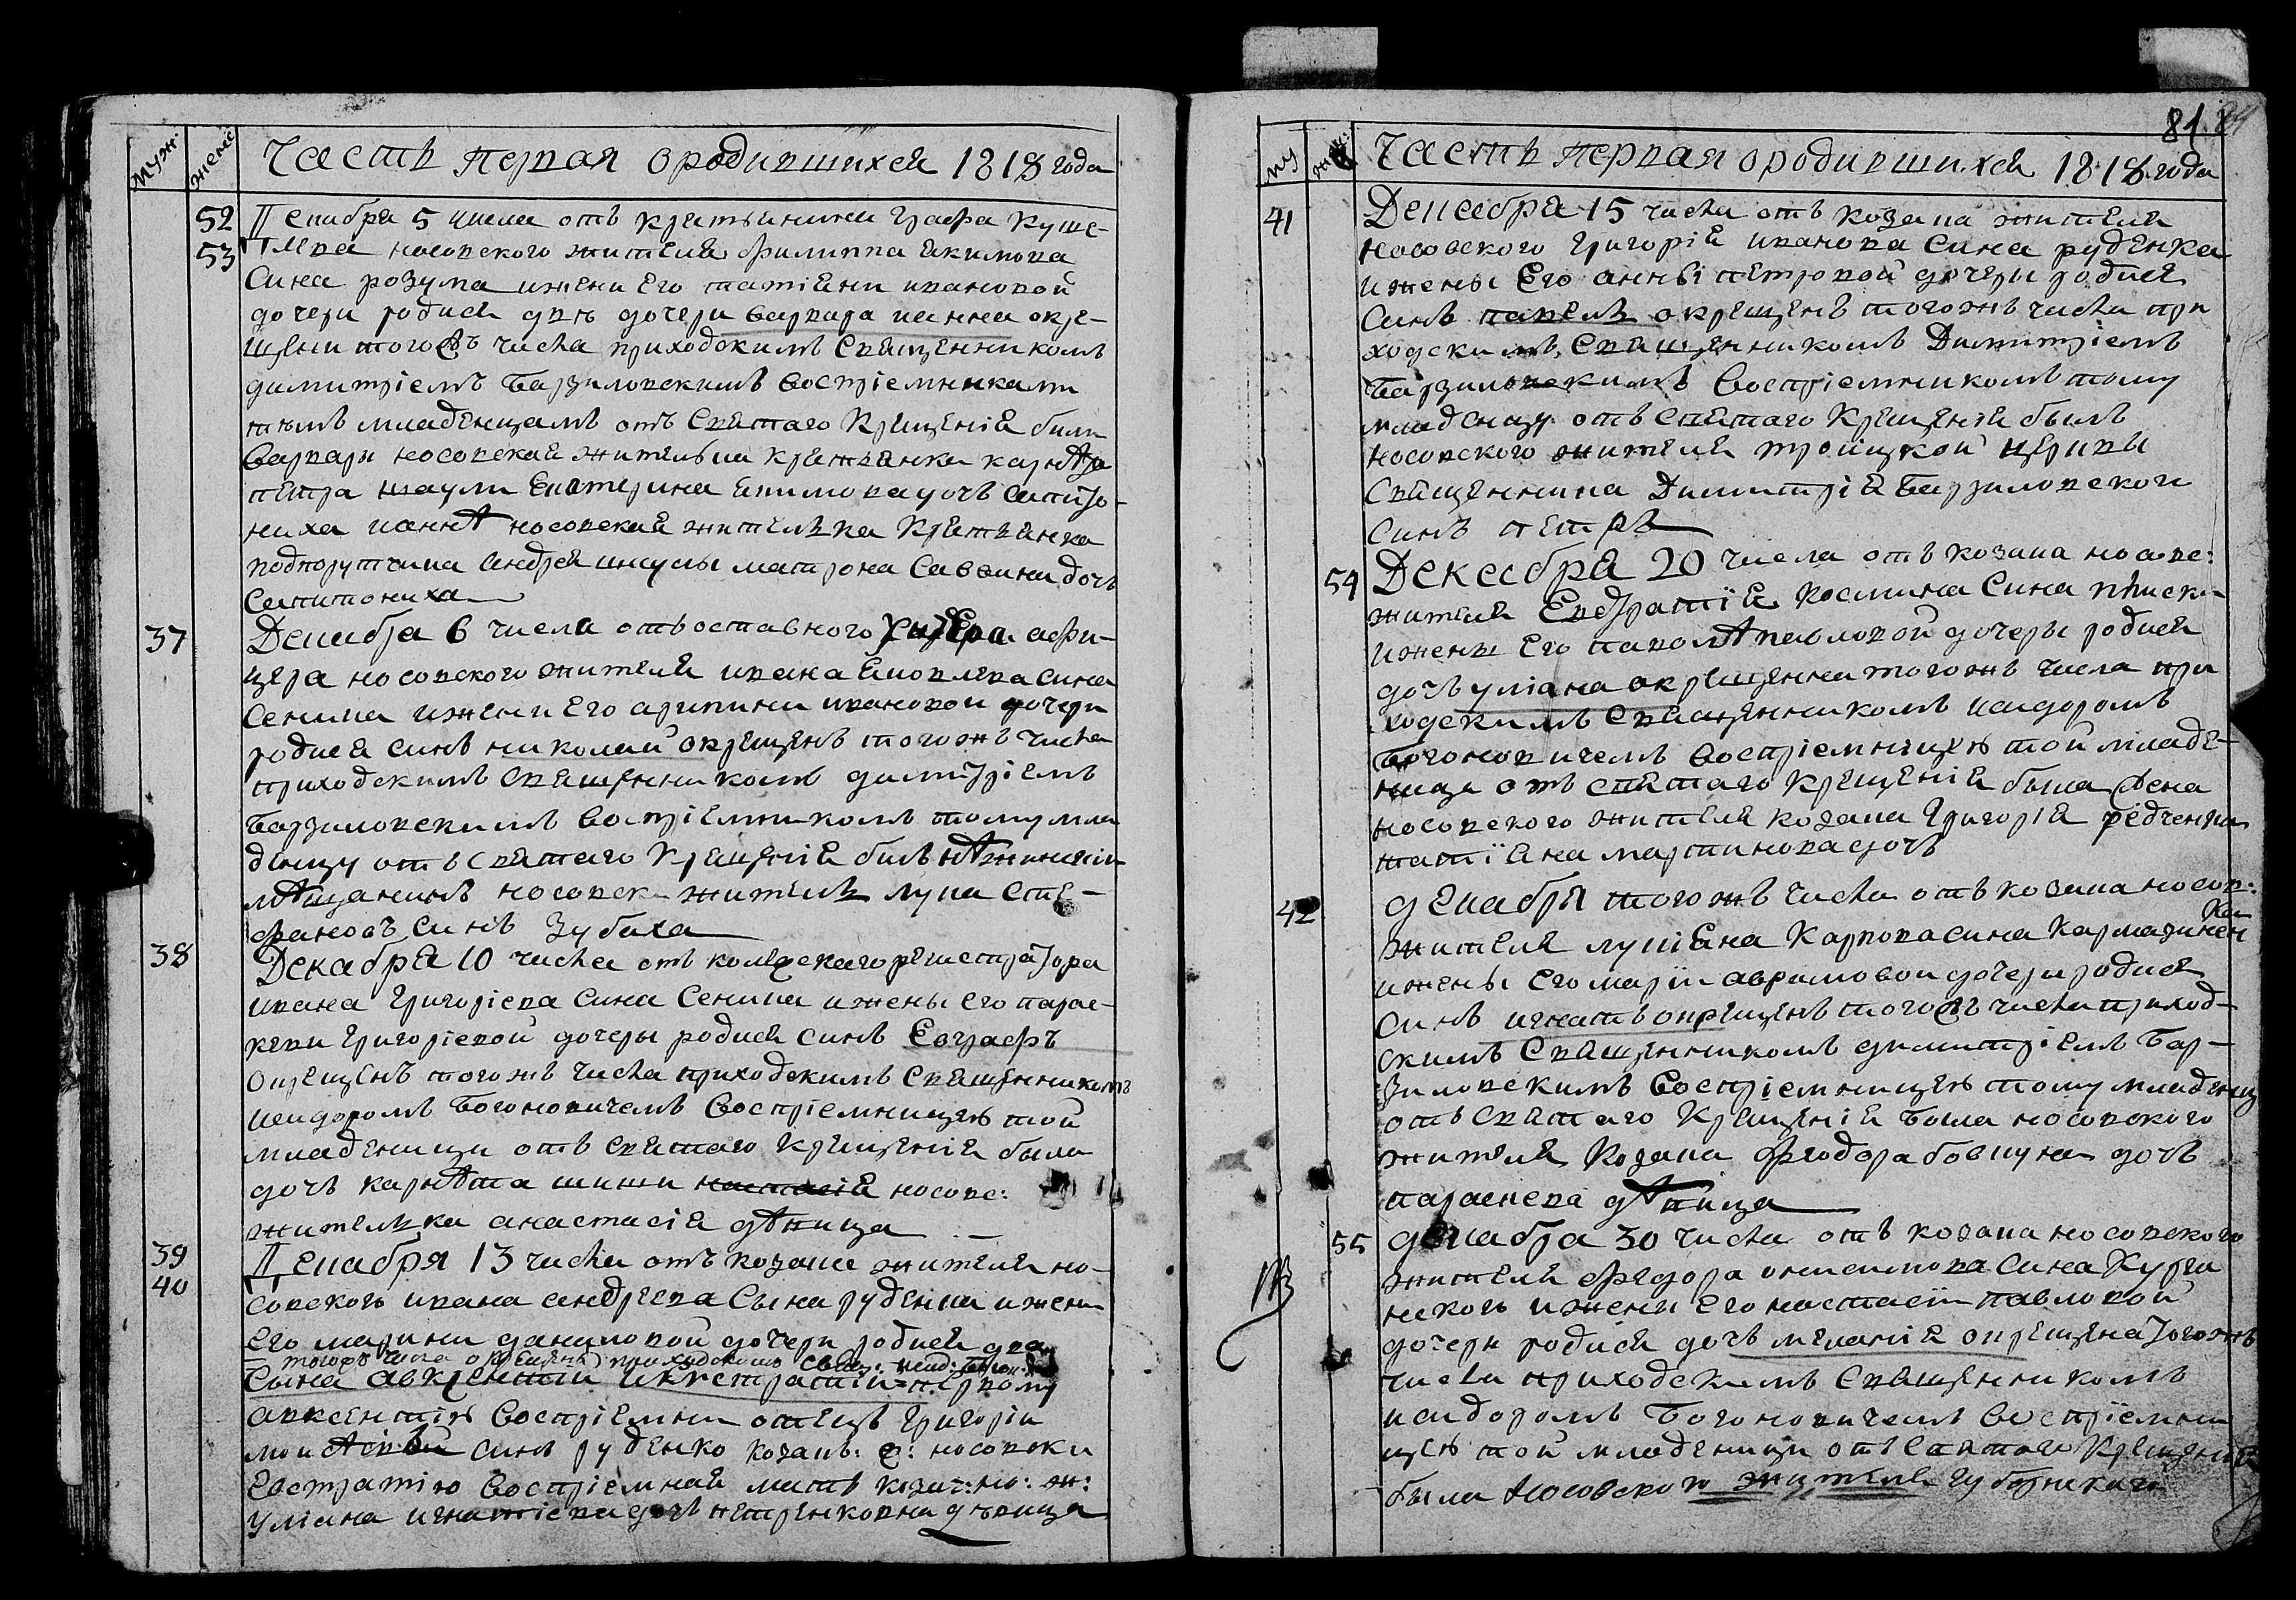 муж. женс
Часть первая ородившихся 1818 года
52 Декабря 5 числа отъ крестьянина графа Куше-
53 лева носовского жителя филиппа екимова
Сина розума ижени Его татіяни ивановой
дочери родися двѣ дочери варвара ианна окре-
щени тогожъ числа приходскимъ Священникомъ
димитріемъ барзиловскимъ воспріемниками
тѣмъ младенцамъ отъ Святаго Крещенія были
варвари носовская жителька крестьянка карнѣта
петра Екатерина екимова дочь
аннѣ носовская жителька Крестьянка
подпорутчика андрея матрона Саввина дочь

37 Декабря 6 числа отъ оставного афи-
цера носовского жителя ивана сина
Сенима ижени Его арипини ивановои дочери
родися синъ николай окрещенъ тогожъ числа
приходскимъ Священникомъ димитріемъ
барзиловскимъ воспріемникомъ тому мла
денцу отъ святаго крещенія билъ нѣжинскій
мѣщанинъ носовск житель лука Сте-
фановъ синъ зубаха
38 Декабря 10 числа отъ колежскаго регистратора
ивана григоріева Сина Сенима ижены его парас-
кеви григоріевой дочеры родися синъ Евграфъ
окрещенъ тогожъ числа приходскимъ Священникомъ
исидоромъ богоновичемъ воспріемницею той
младеници отъ святаго крещенія была
дочь карнѣта носовс:
жителька анастасія дѣвица
39 Декабря 13 числа отъ козака жителя но-
40 совского ивана андреева Сына руденка ижени
его марини даниловой дочери родися два
тогожъ числа окрещены приходскимъ свящ: исид: богон:
Сына авксентій иевстратій первому
авксентію воспріемни отецъ григорій
синъ руденко козакъ: носовски
Евстратію воспріемная мать козач: но: ж:
уліана игнатіева дочь петренковна дѣвица
81
му жен:
Часть первая ородившихся 1818 года
41 Декабря 15 числа отъ козака жителя
носовского григорія иванова сина руденка
ижены Его анны петровой дочеры родися
синъ павелъ окрещенъ тогожъ числа при
ходскимъ, Священникомъ Димитріемъ
барзиловскимъ воспріемникомъ тому
младенцу отъ святаго Крещенія былъ
носовского жителя тройцкой церкви
священника Димитрія барзиловского
синъ петръ
54 Декабря 20 числа отъ козака носовс:
жителя Евстратія Космина Сина
ижены Его павловой дочеры родися
дочь уліана окрещенна тогожъ числа при
ходскимъ священникомъ исидоромъ
богоновичемъ воспріемницею той младе-
нице отъ святаго крещенія была жена
носовского жителя козака григорія редченка
татіана мартинова дочь
42 декабря тогожъ числа отъ козака носов:
жителя лукіана Карпова сина Кармазинен
ка
ижены его маріи аврамовои дочери родися
синъ игнатъ окрещенъ тогожъ числа приход-
скимъ Священникомъ димитріемъ Бар-
зиловскимъ воспріемницею тому младенц
отъ святаго крещенія была носовского
жителя козака феодора бовкуна дочь
параскева дѣвица
55 декабря 30 числа отъ козака носовского
жителя федора онисимова сина
ского ижени его настасіи павловой
дочери родися дочь меланія окрещена тогожъ
числа приходскимъ священникомъ
исидоромъ богоновичемъ воспріемни
цею той младеници отъ святого Крещенія
была носовского жителя губернскаго